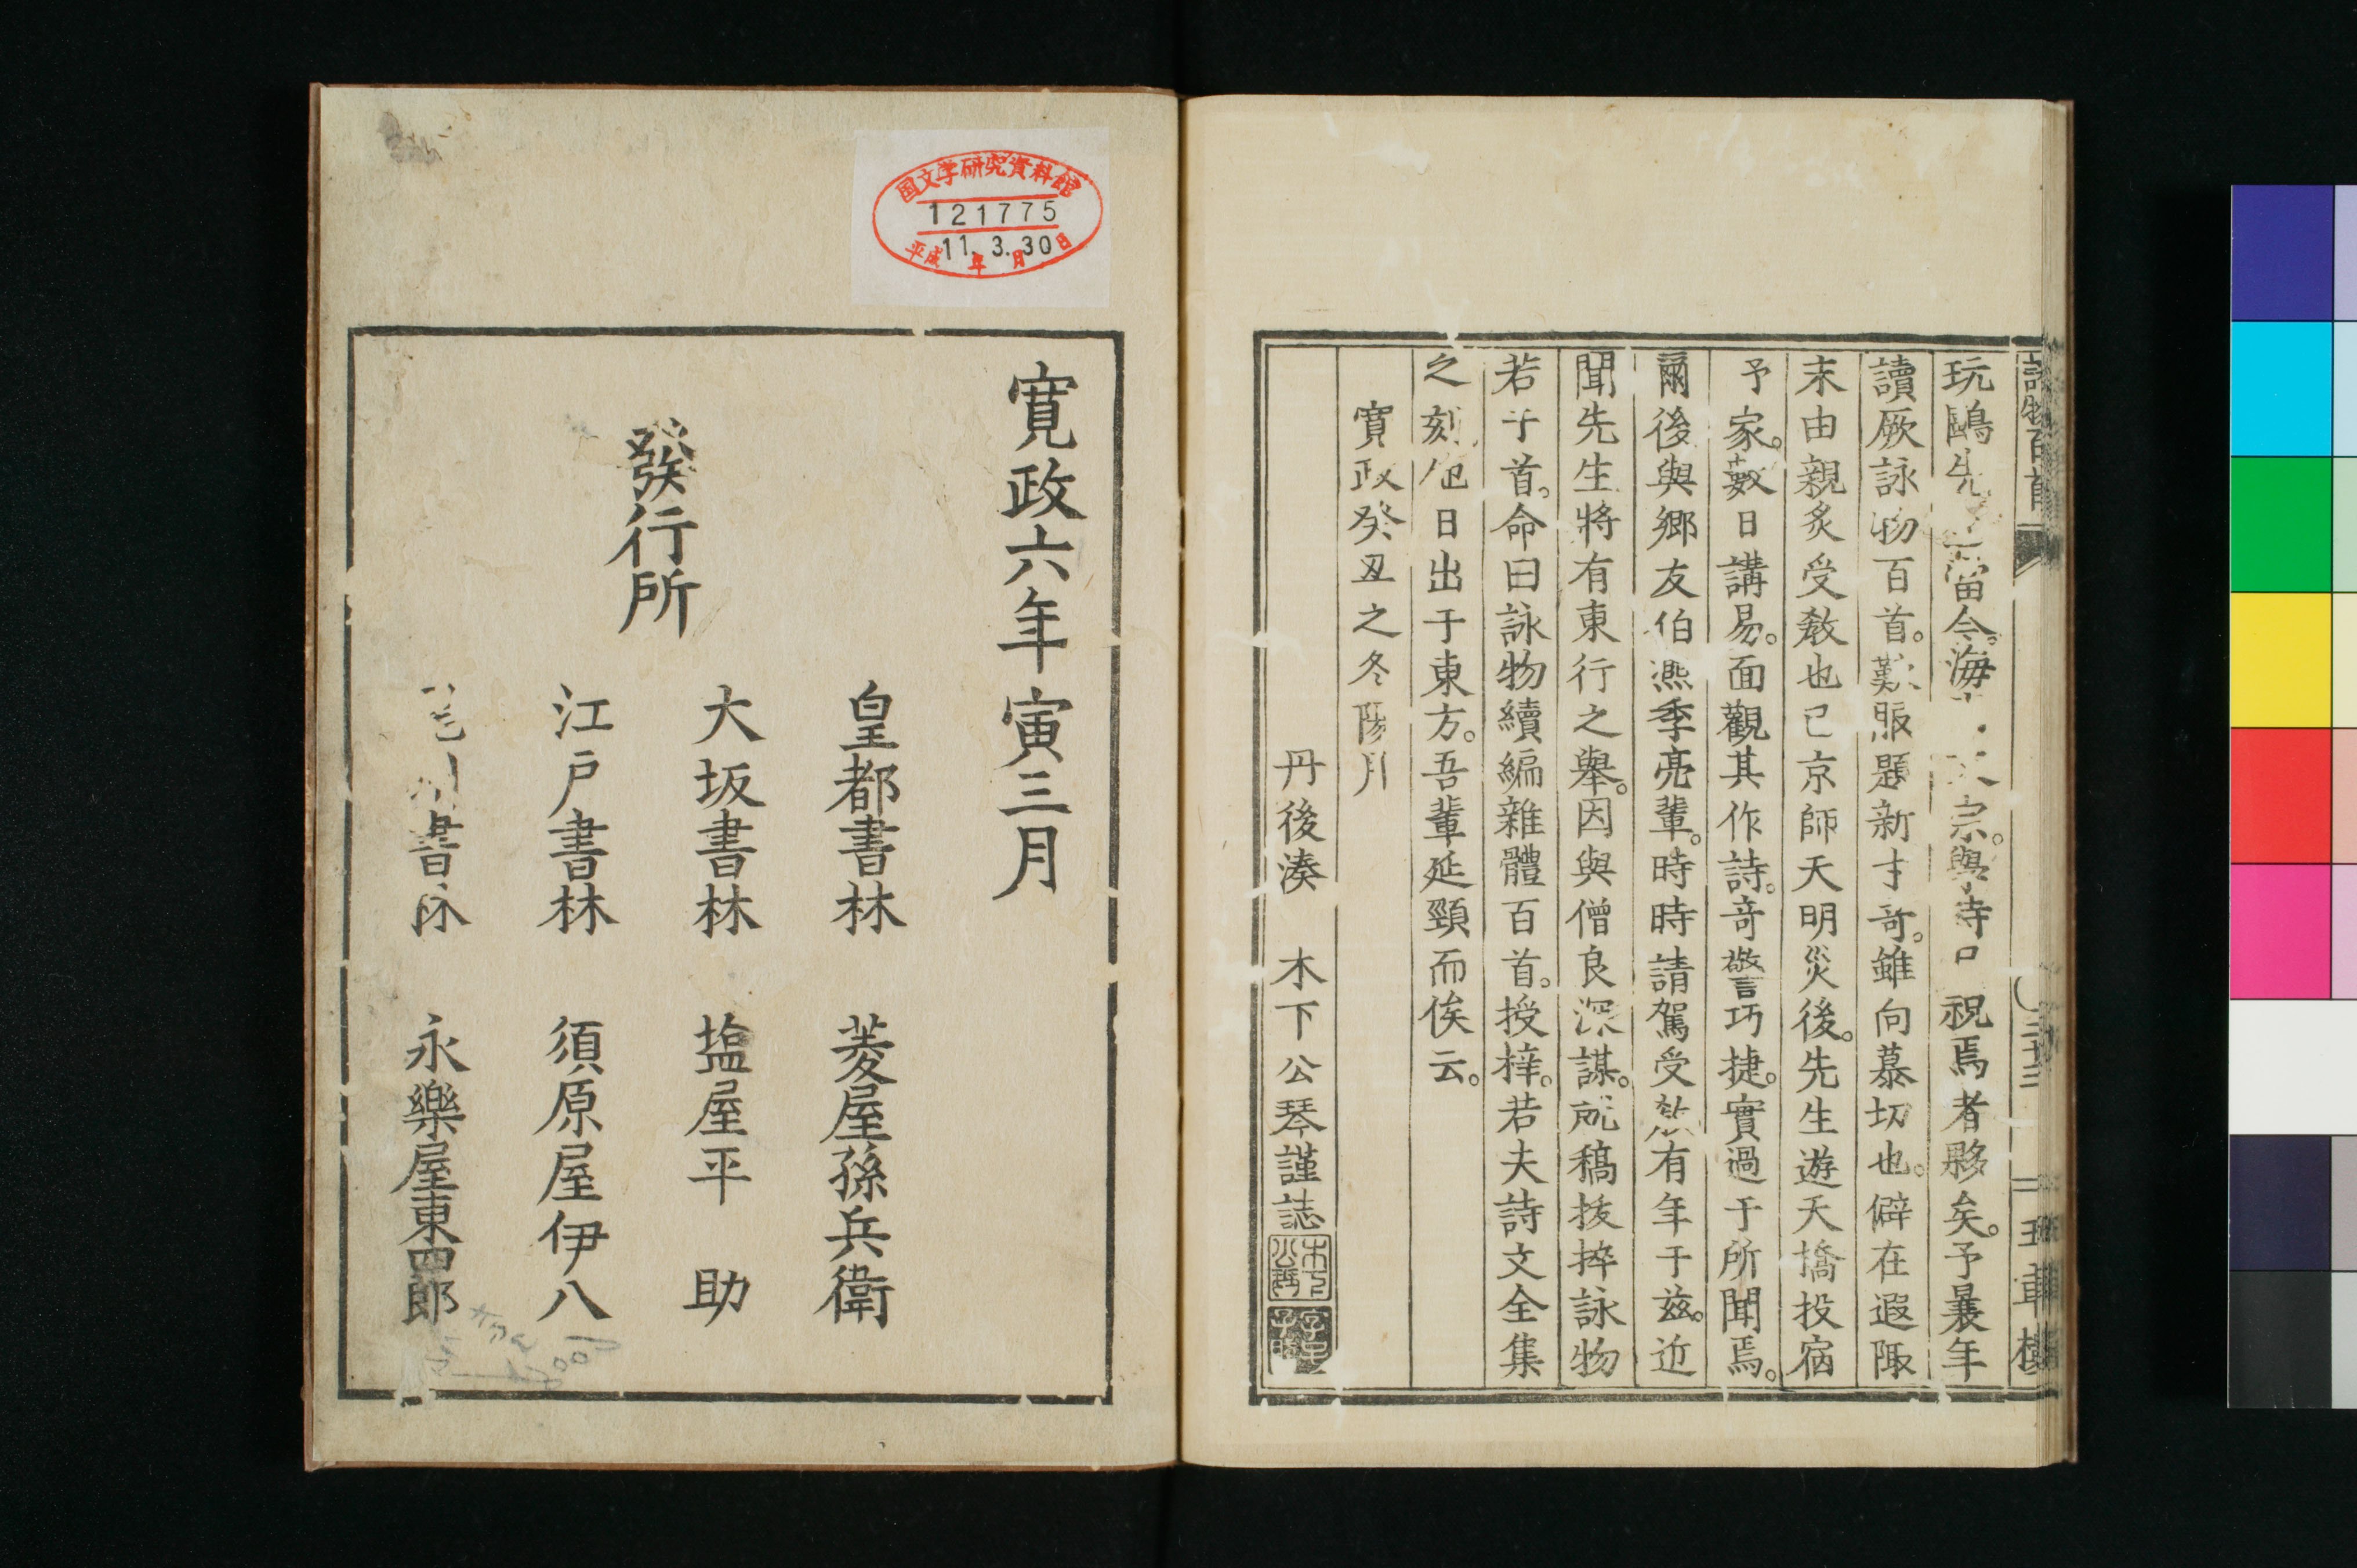 玩鷗先
當今。海
宗。
祝焉者夥矣。予曩年
讀厥詠物百首。歎服題新才奇。雖向慕切也。僻在遐陬
末由親炙受教也已京師天明災後。先生遊天橋投宿
予家。數日講易。面觀其作詩。奇警巧捷。實過于所聞焉。
爾後與鄉友伯凞季亮輩。時時請駕受教有年于茲。近
聞先生將有東行之舉。因與僧良深謀。就稿拔擇詠物
若干首。命曰詠物續編雜體百首。授梓。若夫詩文全集
之刻他日出于東方。吾輩延頸而俟云。
寬政癸丑之冬陽月
丹後湊 木下公琴謹誌
詠物百首
寬政六年寅三月
發行所
皇都書林 菱屋孫兵衛
大坂書林 塩屋平助
江戸書林 須原屋伊八
書林 永樂屋東四郎
国文学研究資料館
121775
平成11年3.月30日